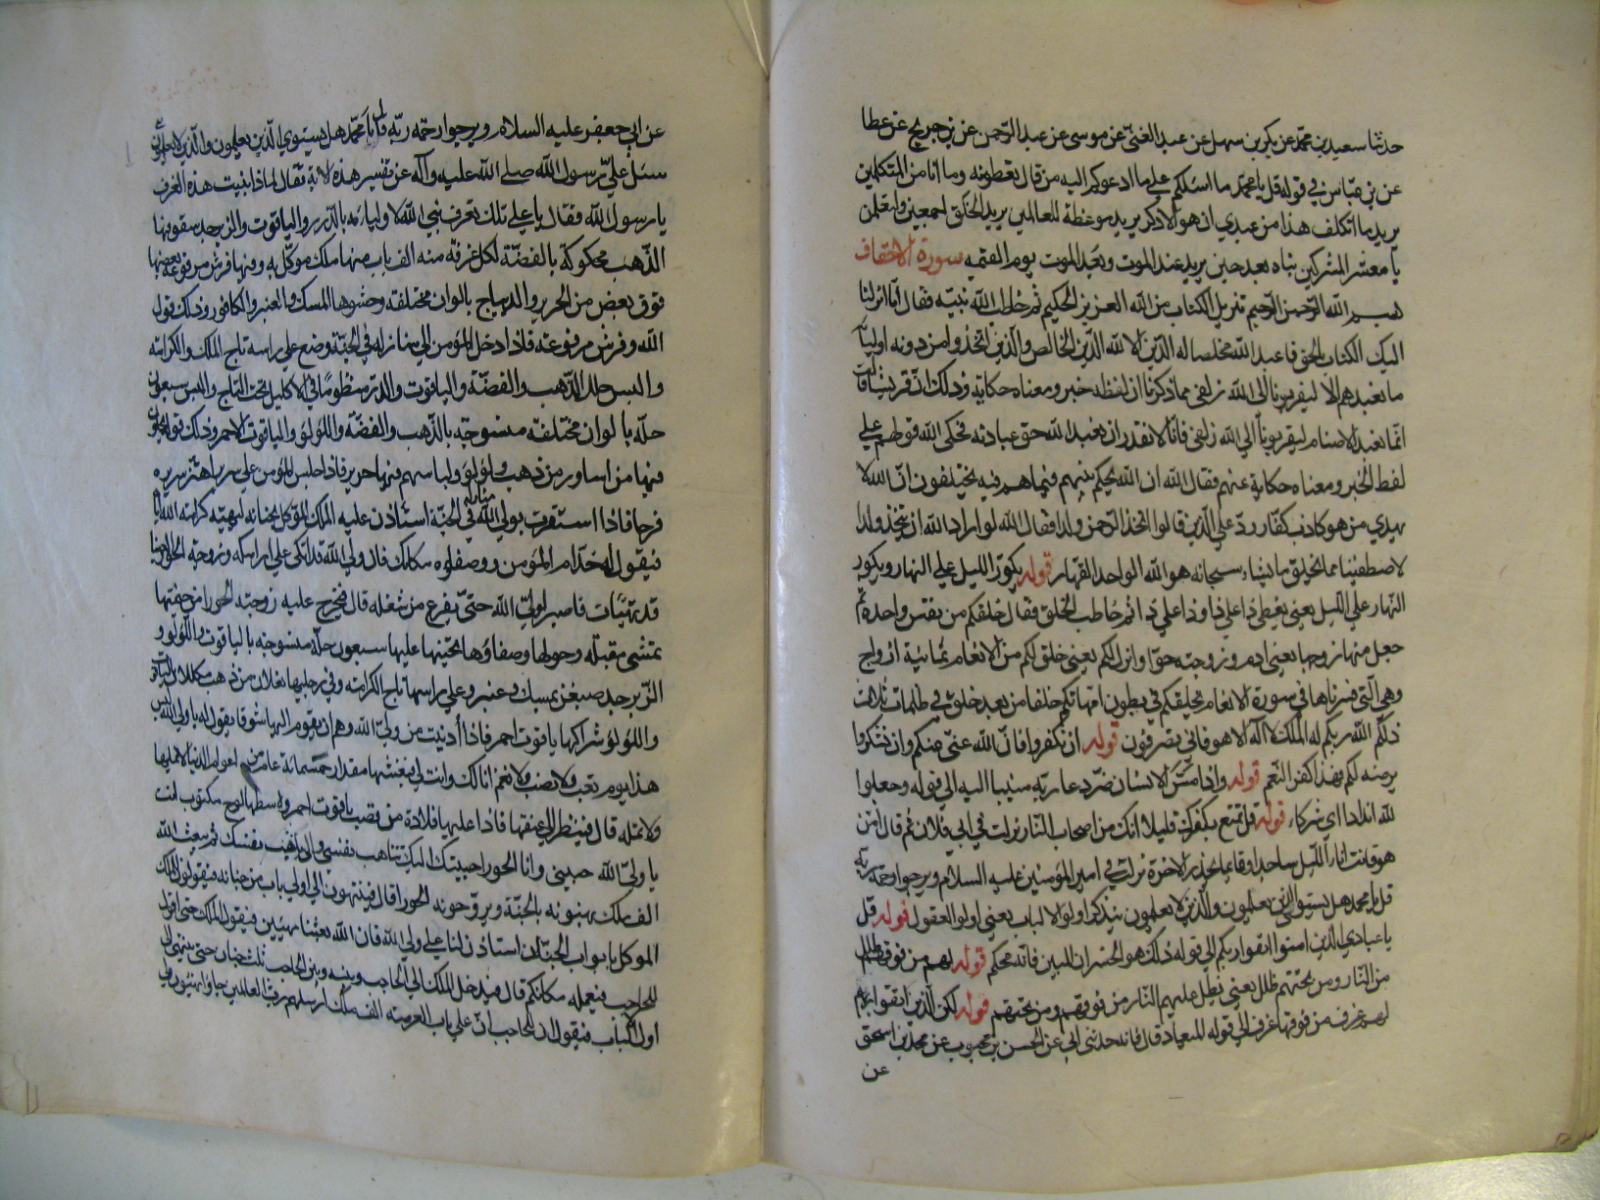 حدثنا سعيد بن محمد عن بكر بن سهل عن عبد الغني عن موسى عن عبد الرحمن عن بن جريج عن عطا
عن بن عباس في قوله قل يا محمد ما اسئلكم علي ما ادعوكم اليه من قال تعطونه وما انا من المتكلفين
يريد ما اتكلف هذا من عندي ان هو الا ذكر يريد موعظة للعالمين يريد الخلق اجمعين ولتعلمن
يا معشر المشركين نباه بعد حين يريد عند الموت وبعد الموت يوم القيمه سورة الاحقاف
بسم الله الرحمن الرحيم تنزيل الكتاب من الله العزيز الحكيم ثم خاطب الله نبيه فقال انا انزلنا
اليك الكتاب بالحق فاعبد الله مخلصا له الدين الا لله الدين الخالص والذين اتخذوا من دونه اوليا
ما نعبدهم الا ليقربونا الي الله زلفي مما ذكرنا ان لفظه خبر ومعناه حكاية وذلك ان قريشا قالت
انما نعبد الاصنام ليقربونا الي الله زلفي فانا لا نقدر ان نعبد الله حق عبادته فحكي الله قولهم علي
لفظ الخبر ومعناه حكاية عنهم فقال الله ان الله يحكم بينهم فيما هم فيه يختلفون ان الله لا
يهدي من هو كاذب كفار رد علي الذين قالوا اتخذ الرحمن ولدا فقال الله لو اراد الله ان يتخذ ولدا
لاصطفينا مما يخلق ما يشاء سبحانه هو الله الواحد القهار قوله يكور الليل علي النهار ويكور
النهار علي الليل يعني يغطي ذا علي ذا وذا علي ذا ثم خاطب الخلق فقال خلقكم من نفس واحدة ثم
جعل منها زوجها يعني ادم وزوجته حوا وانزل لكم يعني خلق لكم من الانعام ثمانية ازواج
وهي التي فسرناها في سورة الانعام يخلقكم في بطون امهاتكم خلقا من بعد خلق في ظلمات ثلاث
ذلكم الله ربكم له الملك لا اله الا هو فاني تصرفون قوله ان تكفروا فان الله غني عنكم وان تشكروا
يرضه لكم فهذا كفر النعم قوله واذا مس الانسان ضر دعا ربه منيبا اليه الي قوله وجعلوا
لله اندادا اي شركاء قوله قل تمتع بكفرك قليلا انك من اصحاب النار نزلت في ابي فلان ثم قال امن
هو قانت اناء الليل ساجدا وقائما يحذر الاخرة نزلت في امير المؤمنين عليه السلام ويرجوا رحمة ربه
قل يا محمد هل يستوي الذين يعلمون والذين لا يعلمون يتذكر اولوا الالباب يعني اولوا العقول قوله قل
يا عبادي الذين امنوا اتقوا ربكم الي قوله ذلك هو الخسران المبين فانه محكم قوله لهم من فوقهم ظلل
من النار ومن تحتهم ظلل يعني تظل عليهم النار من فوقهم ومن تحتهم قوله لكن الذين اتقوا ربهم
لهم غرف من فوقها غرف الي قوله الميعاد قال فانه حدثني ابي عن الحسن بن محبوب عن محمد بن اسحق
عن
عن ابي جعفر عليه السلام ويرجوا رحمة ربه قل يا محمد هل يستوي الذين يعلمون والذين لا يعلمون
سئل علي رسول الله صلي الله عليه وآله عن تفسير هذه الاية فقال لماذا بنيت هذه الغرف
يا رسول الله فقال يا علي تلك غرف بني الله لاوليائه بالدرر والياقوت والزبرجد سقوفها
الذهب محكوكة بالفضة لكل غرفة منه الف باب منها ملك موكل به وفيها فرش مرفوعة بعضها
فوق بعض من الحرير والديباج بالوان مختلفة وحشوها المسك والعنبر والكافور وذلك قول
الله وفرش مرفوعة فاذا دخل المؤمن الي منازله في الجنة وضع علي راسه تاج الملك والكرامة
والبس حلل الذهب والفضة والياقوت والدر منظوما في الاكليل تحت التاج والبس سبعون
حلة بالوان مختلفة منسوجة بالذهب والفضة واللؤلؤ والياقوت الاحمر وذلك قوله يحلون
فيها من اساور من ذهب ولؤلؤ ولباسهم فيها حرير فاذا جلس المؤمن علي سريره اهتز سريره
فرحا فاذا استقرت بولي الله منازله في الجنة استاذن عليه الملك الموكل بجنانه ليهنيه كرامة الله اياه
فيقول له خدام المؤمن ووصفاوه مكانك فان ولي الله قد اتكي علي ارايكه وزوجته الحورا العينا
قد تهيات فاصبر لولي الله حتي يفرغ من شغله قال فتخرج عليه زوجته الحورا من خيمتها
تمشي مقبلة وحولها وصفاؤها يحيينها عليها سبعون حلة منسوجة بالياقوت واللؤلؤ و
الزبرجد صبغن بمسك وعنبر وعلي راسها تاج الكرامة وفي رجليها نعلان من ذهب مكللان بالياقوت
واللؤلؤ شراكها ياقوت احمر فاذا أدنيت من ولي الله وهم ان يقوم اليها شوقا يقول له يا ولي الله ليس
هذا يوم تعب ولا نصب ولا تقم انا لك وانت لي فيغشيها مقدار خمسمائة عام من اعوام الدنيا لا يملها
ولا تمله قال فينظر الي عنقها فاذا عليها قلادة من قصب ياقوت احمر وسطها لوح مكتوب انت
يا ولي الله حبيبي وانا الحورا حبيبتك اليك تناهت نفسي والي تناهت نفسك ثم يبعث الله
الف ملك يهنونه بالجنة ويزوجونه الحورا قال فينتهون الي اولي باب من جنانه فيقولون للملك
الموكل بابواب الجنان استاذن لنا علي ولي الله فان الله بعثنا مهنيين فيقول الملك حتي اقول
للحاجب فيعلمه مكانكم قال فيدخل الملك الي الحاجب وبينه وبين الحاجب ثلث جنان حتي ينتهي الي
اول باب فيقول للحاجب ان علي باب العرصة الف ملك ارسلهم رب العالمين جاوا يهنيون ولي